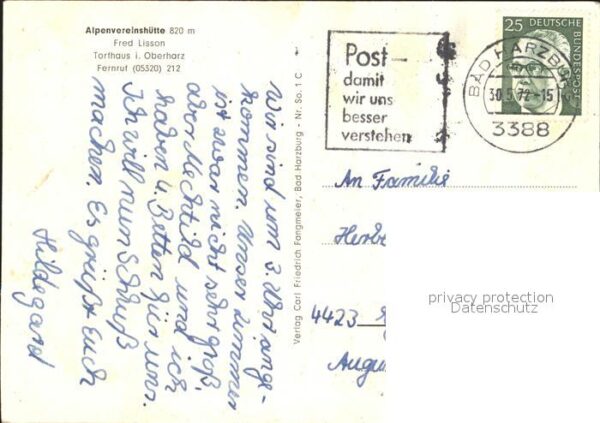 Alpenvereinshütte 820 m
Fred Lisson
Torfhaus i. Oberharz
Fernruf (05320) 212
Wir sind um 3 Uhr ange-
kommen. Unser Zimmer
ist zwar nicht sehr groß,
aber Mechtild und ich
haben 4 Betten für uns.
Ich will nun Schluß
machen. Es grüßt Euch
Hildegard
Verlag Carl Friedrich Fangmeier, Bad Harzburg - Nr. So. 1 C
Post –
damit
wir uns
besser
verstehen
BAD HARZBURG
30.5.72-15
3388
25 DEUTSCHE
BUNDESPOST
An Familie
Herbe
4423
Augu
privacy protection
Datenschutz